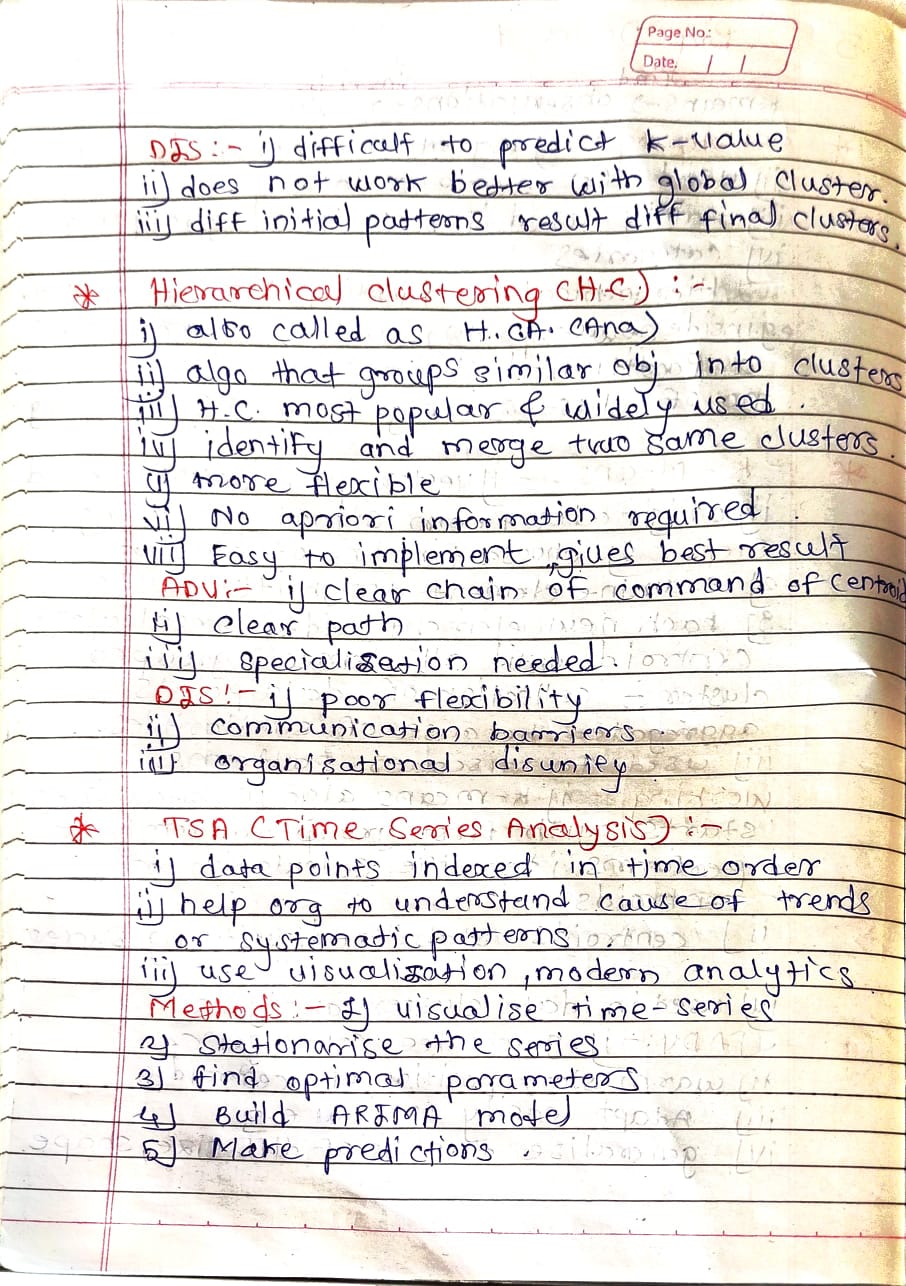 Page No.:
Date. / /
DIS :- i) difficult to predict k-value
ii) does not work better with global cluster.
iii) diff initial patterns result diff final clusters.
* Hierarchical clustering (H.C.) :-
i) also called as H.CA. (Ana)
ii) algo that groups similar obj into clusters
iii) H.C. most popular & widely used.
iv) identify and merge two same clusters.
v) more flexible
vi) No apriori information required.
vii) Easy to implement, gives best result
ADV:- i) clear chain of command of centroid
ii) clear path
iii) specialisation needed.
DIS!- i) poor flexibility
ii) communication barriers
iii) organisational disunity
* TSA (Time Series Analysis) :-
i) data points indexed in time order
ii) help org to understand cause of trends
or systematic patterns
iii) use visualisation, modern analytics
Methods :- 1) visualise time-series
2) Stationarise the series
3) find optimal parameters
4) Build ARIMA model
5) Make predictions.